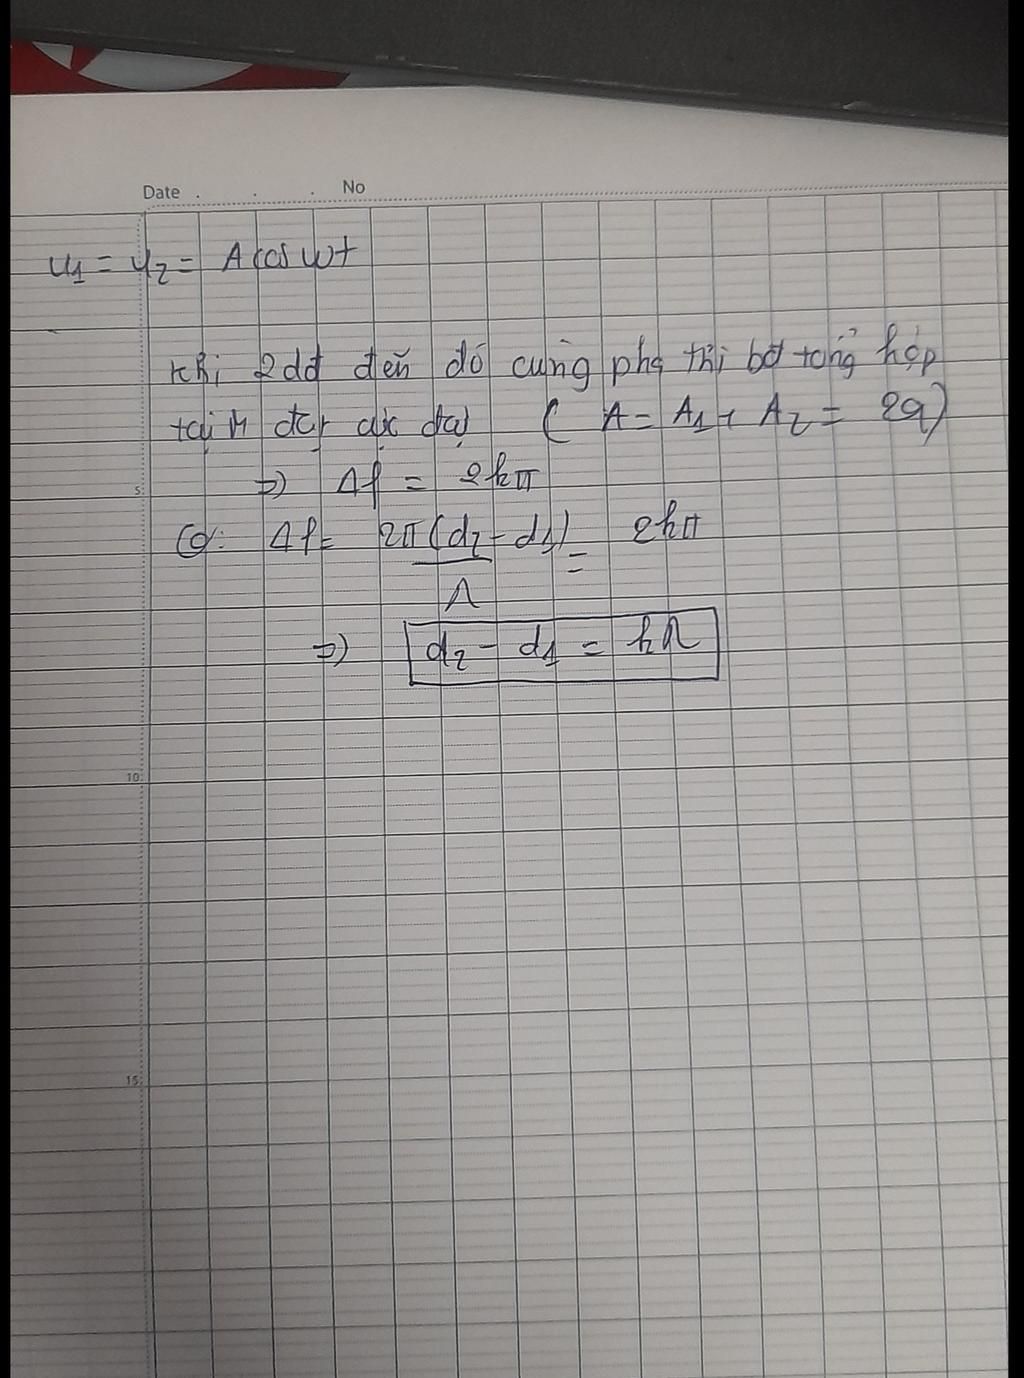 Date . . . No
u₁ = u₂ = A cos ωt
Khi 2dđ đến đó cùng pha thì bđ tổng hợp
tại M đạt cực đại ( A = A₁ + A₂ = 2a)
5
=> Δφ = 2kπ
Có: Δφ = 2π(d₂ - d₁)/λ = 2kπ
=> d₂ - d₁ = kλ
10
15